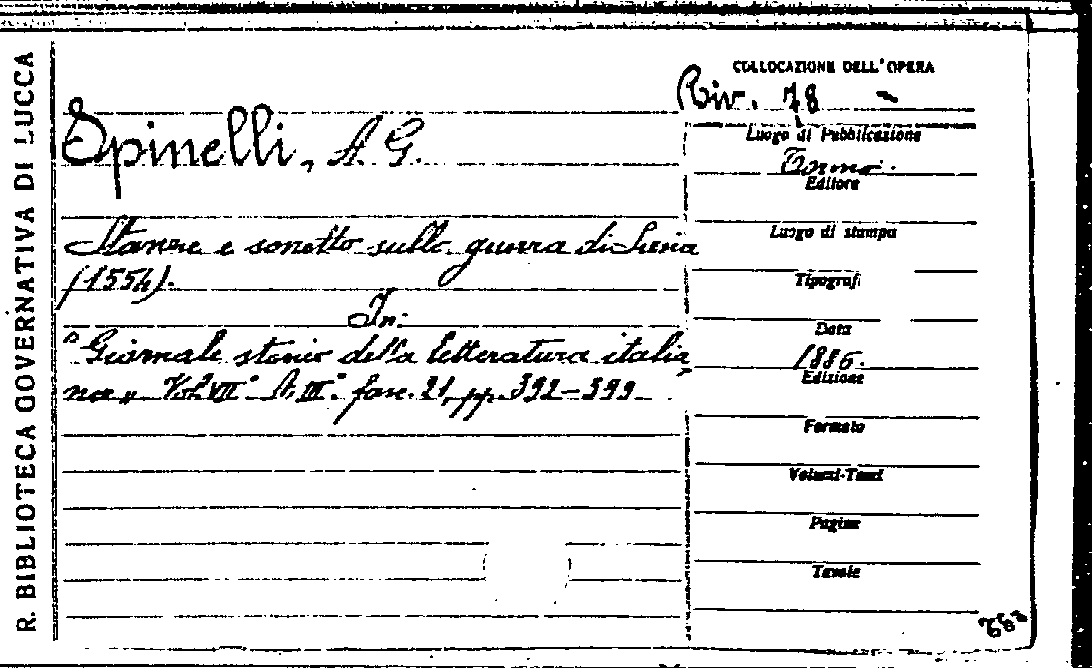 R. BIBLIOTECA GOVERNATIVA DI LUCCA
COLLOCAZIONE DELL'OPERA
Riv. 78
Spinelli, A. G.
Stanze e sonetto sulla guerra di Siena
(1554).
In:
"Giornale storico della letteratura italia
na„ Vol. VII° A. III° fasc. 21, pp. 392-399
Luogo di Pubblicazione
Torino.
Editore
Luogo di stampa
Tipografi
Data
1886.
Edizione
Formato
Volumi-Tomi
Pagine
Tavole